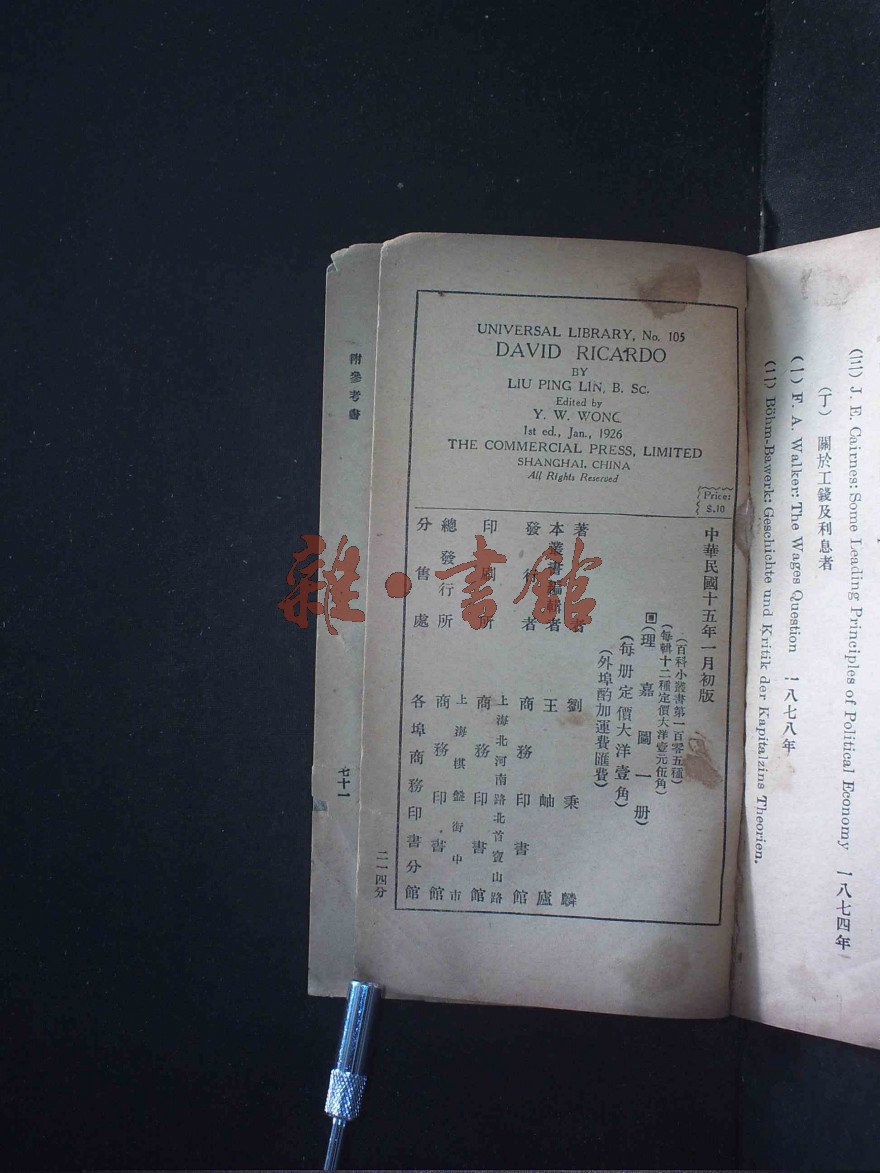 UNIVERSAL LIBRARY, No. 105
DAVID RICARDO
BY
LIU PING LIN, B. Sc.
Edited by
Y. W. WONG
1st ed., Jan., 1926
THE COMMERCIAL PRESS, LIMITED
SHANGHAI, CHINA
All Rights Reserved
Price:
$.10
中華民國十五年一月初版
(百科小叢書第一百零五種)
(每輯十二種定價大洋壹元伍角)
(理嘉圖一册)
(每册定價大洋壹角)
(外埠酌加運費匯費)
著者 劉秉麟
本叢書編輯者 王岫廬
發行者 商務印書館
上海北河南路北首寶山路
印刷所 商務印書館
上海棋盤街中市
總發行所 商務印書館
分售處 各埠商務印書分館
二一四分
附參考書
七十一
(三) J. E. Cairnes: Some Leading Principles of Political Economy 一八七四年
(丁) 關於工錢及利息者
(一) F. A. Walker: The Wages Question 一八七八年
(二) Böhm-Bawerk: Geschichte und Kritik der Kapitalzins Theorien.
雜·書館